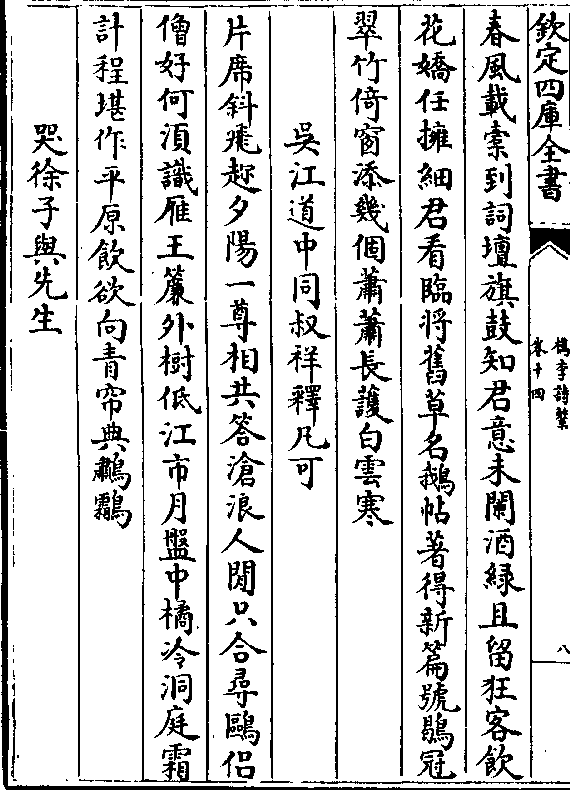 欽定四庫全書
檇李詩繫
卷十四
八
春風載橐到詞壇旗鼓知君意未闌酒緑且留狂客飲
花嬌任擁細君看臨將舊草名鵝帖著得新篇號鶡冠
翠竹倚窗添幾個蕭蕭長護白雲寒
吳江道中同叔祥釋凡可
片席斜飛趂夕陽一尊相共答滄浪人閒只合尋鷗侣
僧好何湏識雁王簾外樹低江市月盤中橘冷洞庭霜
計程堪作平原飲欲向青帘典鷫鸘
哭徐子與先生